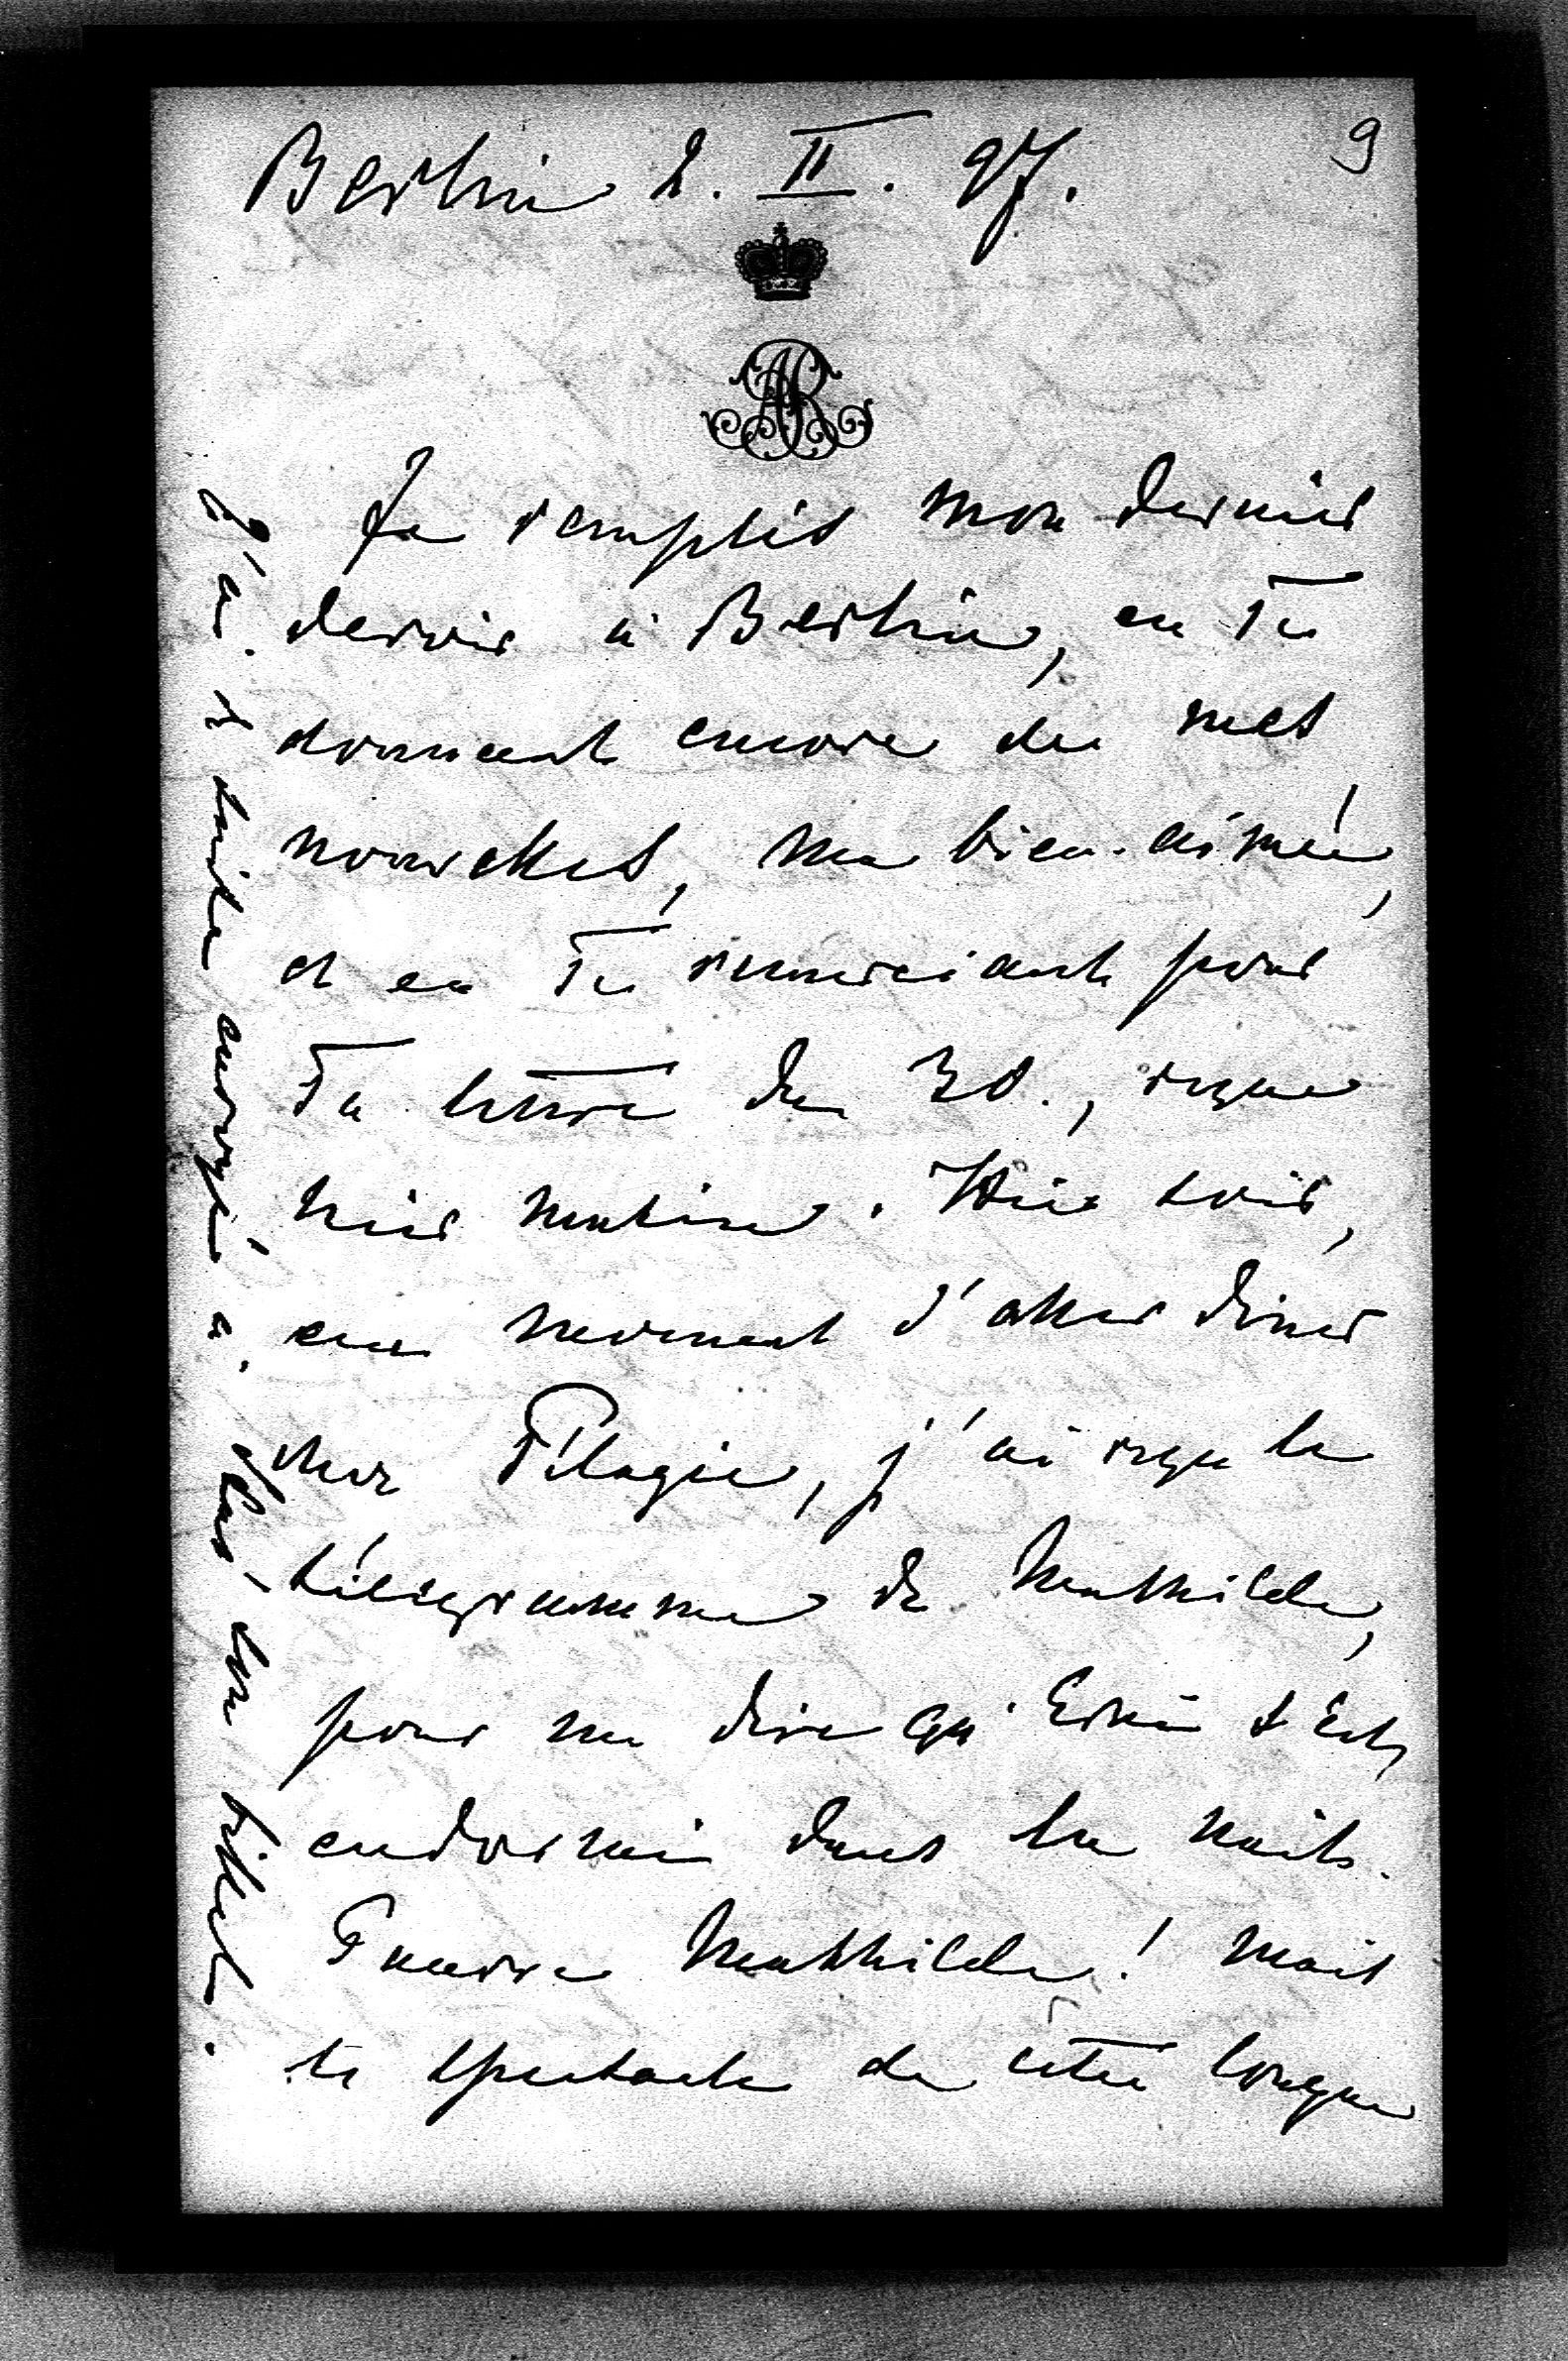 Berlin 2. II. 97.
9
AR
Je remplis mon dernier
devoir à Berlin, en Te
donnant encore de mes
nouvelles, ma bien-aimée,
et en Te remerciant pour
Ta lettre du 30., reçue
hier matin. Hier soir,
au moment d'aller dîner
chez Pélagie, j'ai reçu le
télégramme de Mathilde,
pour me dire qu'Erni s'est
endormi dans la nuit.
Pauvre Mathilde! mais
le spectacle de cette longue
J'ai de suite envoyé à
un billet.